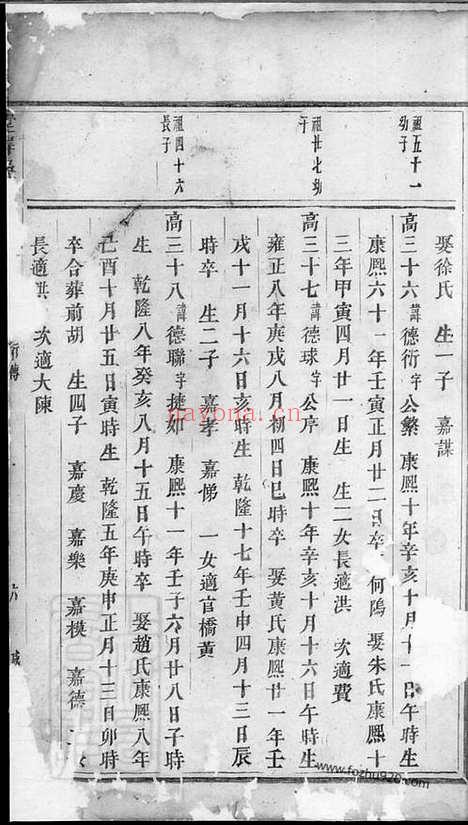 祖五十一
幼子
祖廿七幼
子
祖四十六
長子
娶徐氏 生一子 嘉謀
高三十六諱德衍字公繁 康熙十年辛亥十月十一日午時生
康熙六十一年壬寅正月廿二日卒 何塢 娶朱氏康熙十
三年甲寅四月廿一日生 生二女長適洪 次適費
高三十七諱德球字公序 康熙十年辛亥十月十六日午時生
雍正八年庚戌八月初四日巳時卒 娶黃氏康熙廿一年壬
戌十一月十六日亥時生 乾隆十七年壬申四月十三日辰
時卒 生二子 嘉孝 嘉悌 一女適官橋黃
高三十八諱德聯字捷如 康熙十一年壬子六月廿八日子時
生 乾隆八年癸亥八月十五日午時卒 娶趙氏康熙八年
己酉十月廿五日寅時生 乾隆五年庚申正月十三日卯時
卒合葬前胡 生四子 嘉慶 嘉樂 嘉模 嘉德 二女
長適洪 次適大陳
行傳
nayona.cn
www.fozhu920.com